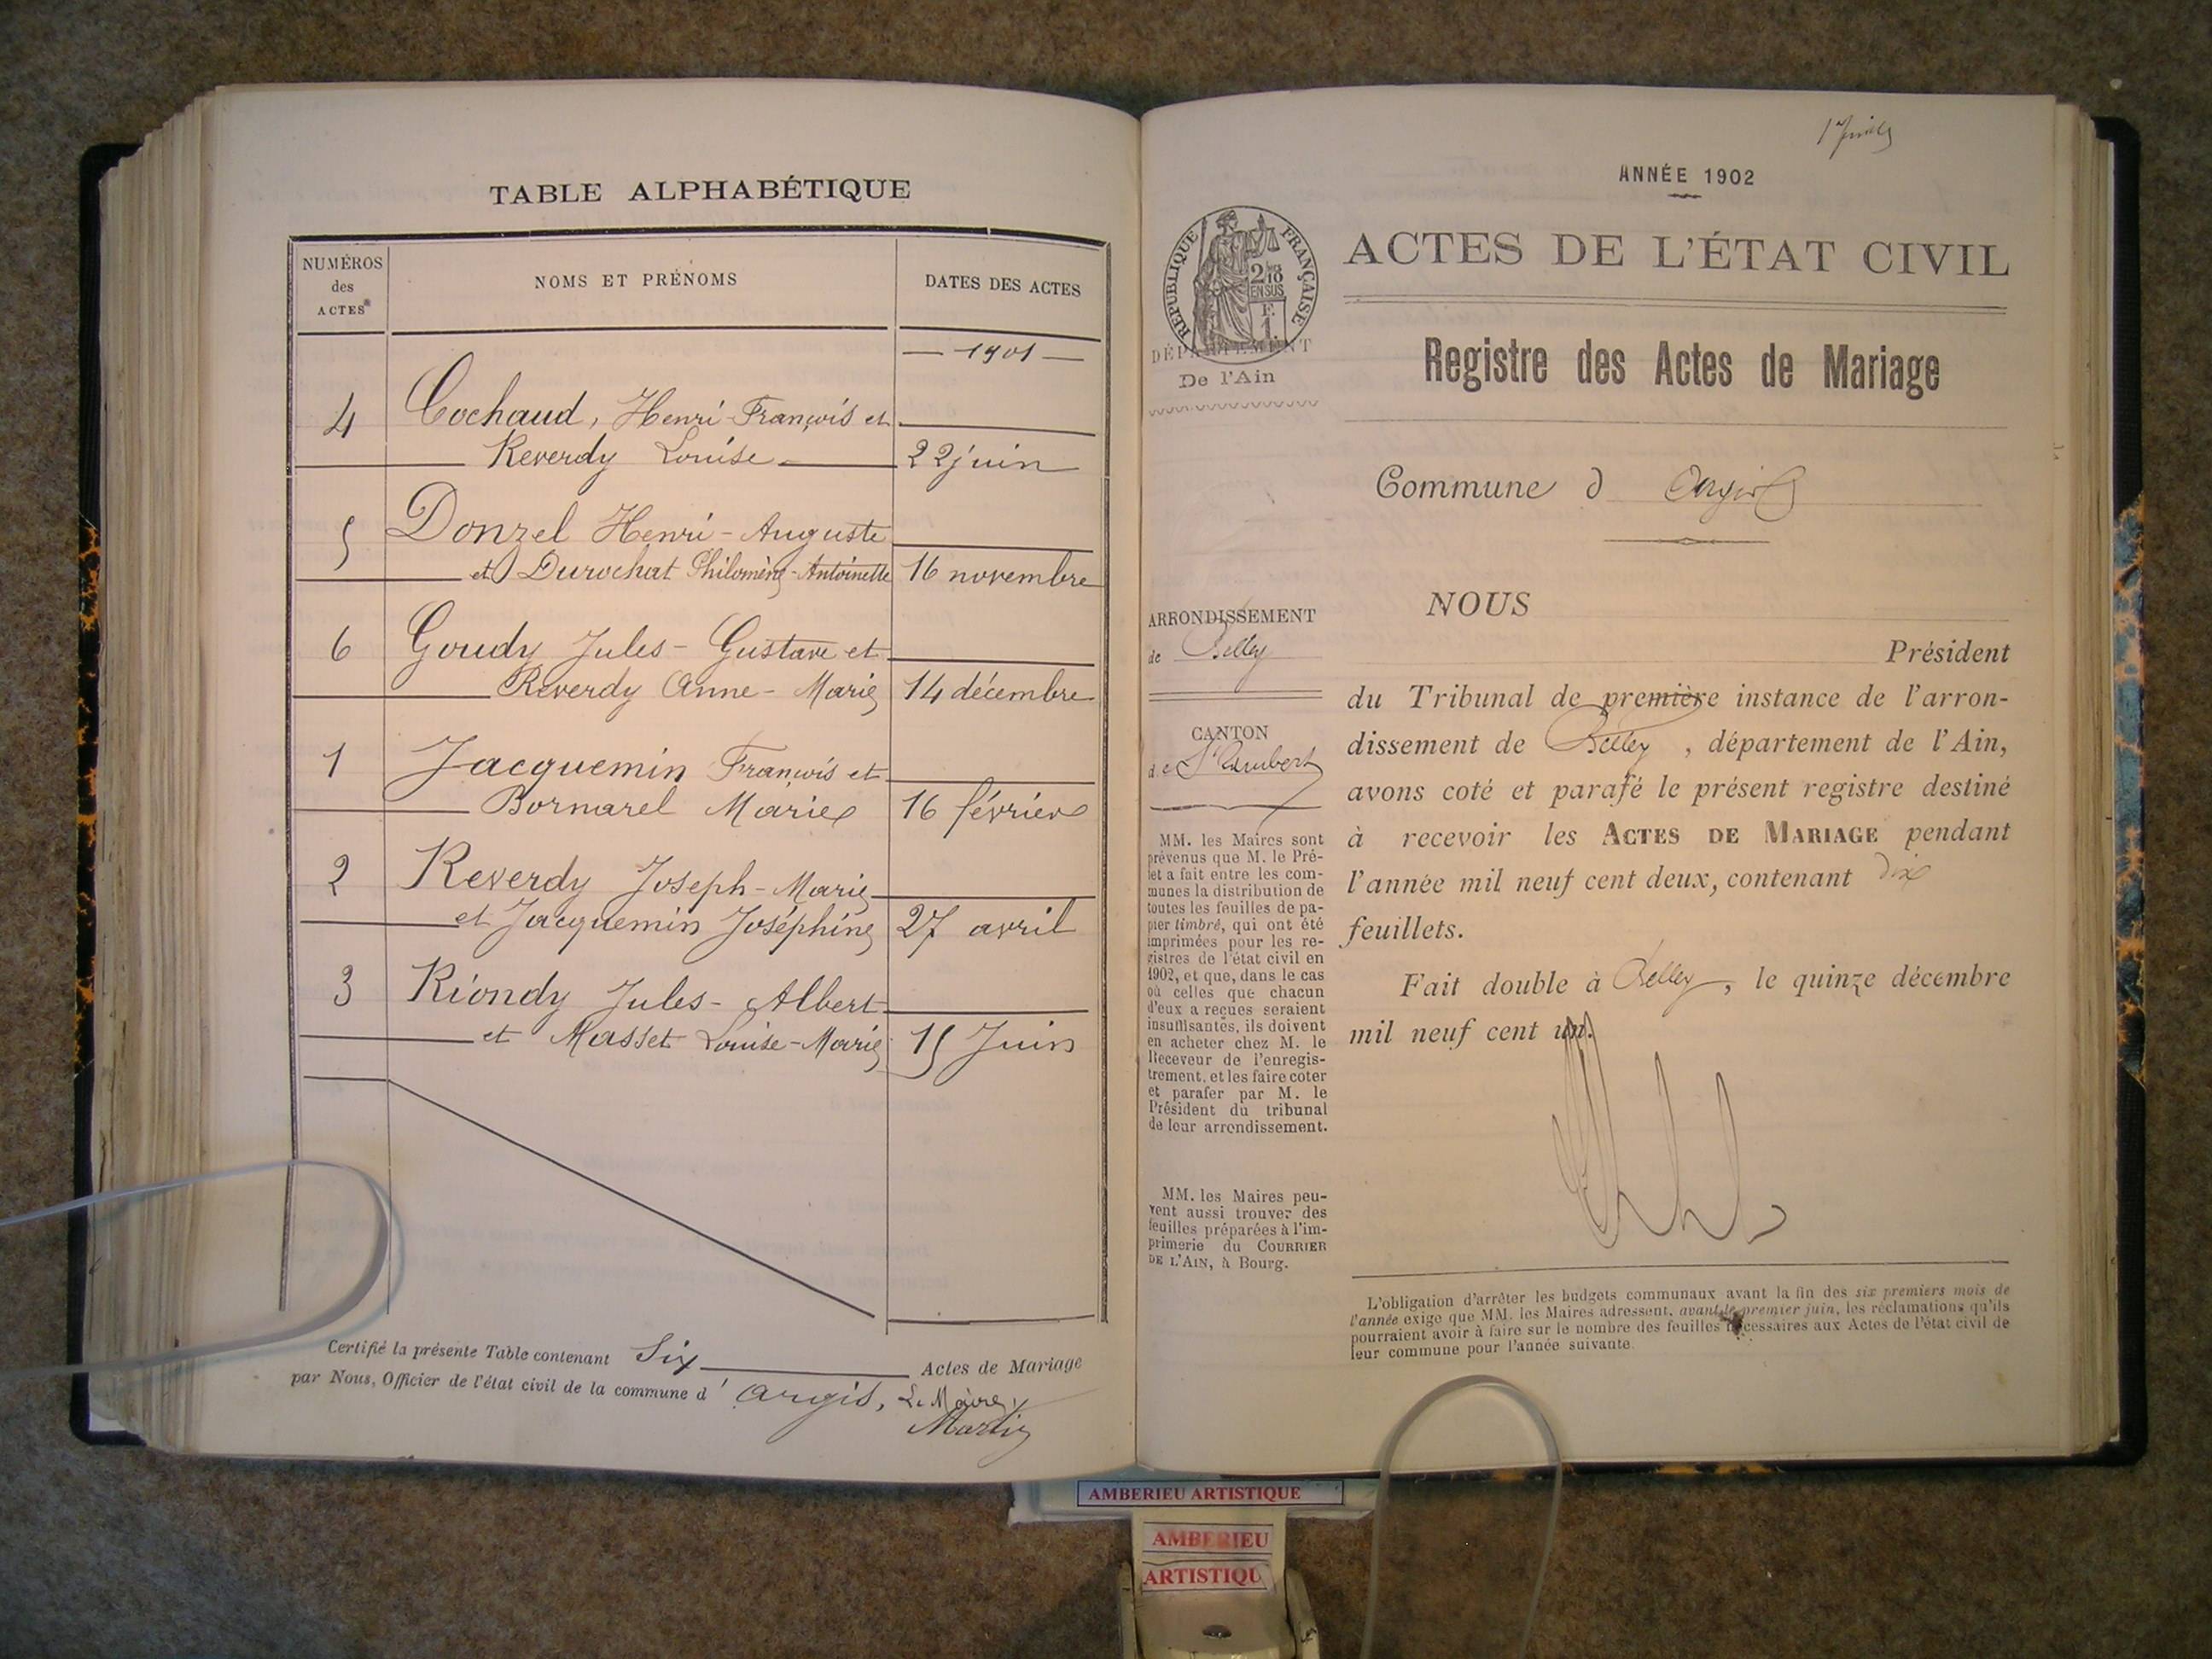 TABLE ALPHABÉTIQUE
NUMÉROS
des
ACTES
NOMS ET PRÉNOMS
DATES DES ACTES
— 1901 —
4
Cochaud, Henri-François et
Reverdy Louise
22 juin
5
Donzel Henri-Auguste
et Durochat Philomène-Antoinette
16 novembre
6
Goudy Jules-Gustave et
Reverdy Anne-Marie
14 décembre
1
Jacquemin François et
Bornarel Marie
16 février
2
Reverdy Joseph-Marie
et Jacquemin Joséphine
27 avril
3
Riondy Jules-Albert
et Masset Louise-Marie
15 Juin
Certifié la présente Table contenant Six Actes de Mariage
par Nous, Officier de l'état civil de la commune d'Argis, Le Maire,
Martin
ANNÉE 1902
RÉPUBLIQUE FRANÇAISE
2/10
EN SUS
F.
1.
DÉPARTEMENT
De l'Ain
ACTES DE L'ÉTAT CIVIL
Registre des Actes de Mariage
Commune d Argis
ARRONDISSEMENT
de Belley
CANTON
de St Rambert
MM. les Maires sont
prévenus que M. le Pré-
fet a fait entre les com-
munes la distribution de
toutes les feuilles de pa-
pier timbré, qui ont été
imprimées pour les re-
gistres de l'état civil en
1902, et que, dans le cas
où celles que chacun
d'eux a reçues seraient
insuffisantes, ils doivent
en acheter chez M. le
Receveur de l'enregis-
trement, et les faire coter
et parafer par M. le
Président du tribunal
de leur arrondissement.
MM. les Maires peu-
vent aussi trouver des
feuilles préparées à l'im-
primerie du COURRIER
DE L'AIN, à Bourg.
NOUS
Président
du Tribunal de première instance de l'arron-
dissement de Belley, département de l'Ain,
avons coté et parafé le présent registre destiné
à recevoir les ACTES DE MARIAGE pendant
l'année mil neuf cent deux, contenant dix
feuillets.
Fait double à Belley, le quinze décembre
mil neuf cent un.
L'obligation d'arrêter les budgets communaux avant la fin des six premiers mois de
l'année exige que MM. les Maires adressent, avant le premier juin, les réclamations qu'ils
pourraient avoir à faire sur le nombre des feuilles nécessaires aux Actes de l'état civil de
leur commune pour l'année suivante.
AMBERIEU ARTISTIQUE
AMBERIEU
ARTISTIQU